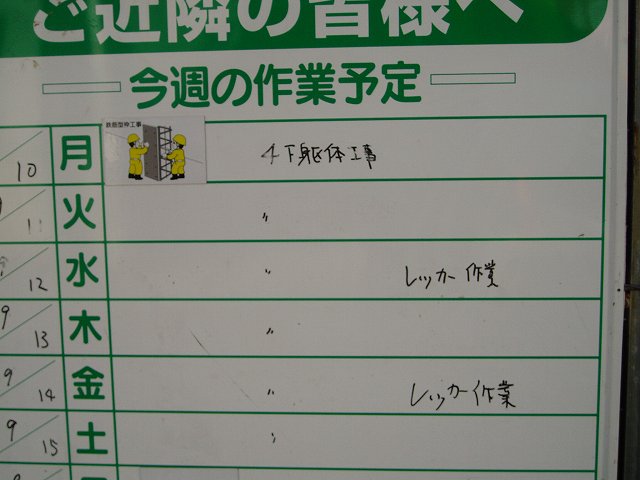 ご近隣の皆様へ
今週の作業予定
10 月 鉄筋型枠工事 4F躯体工事
11 火 〃
12 水 〃 レッカー作業
9/13 木 〃
9/14 金 〃 レッカー作業
9/15 土 〃